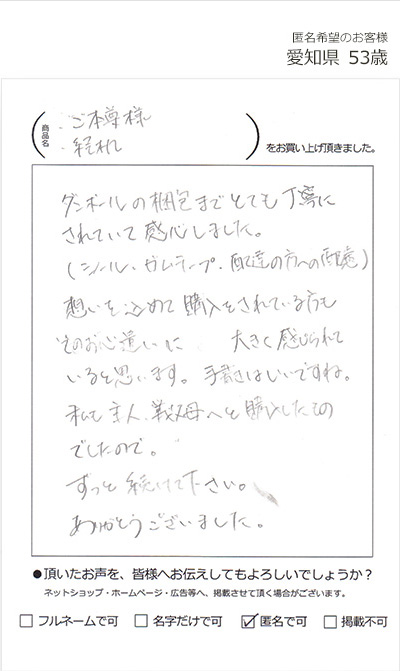 匿名希望のお客様
愛知県 53歳
商品名
・ご本尊様
・経机
をお買い上げ頂きました。
ダンボールの梱包までとても丁寧に
されていて感心しました。
(シール・ガムテープ・配達の方への配慮)
想いを込めて購入をされている方も
そのお心遣いに 大きく感じられて
いると思います。手書きはいいですね。
私も主人、義父母へと購入したもの
でしたので。
ずっと続けて下さい。
ありがとうございました。
●頂いたお声を、皆様へお伝えしてもよろしいでしょうか?
ネットショップ・ホームページ・広告等へ、掲載させて頂く場合がございます。
□フルネームで可 □名字だけで可 ☑匿名で可 □掲載不可